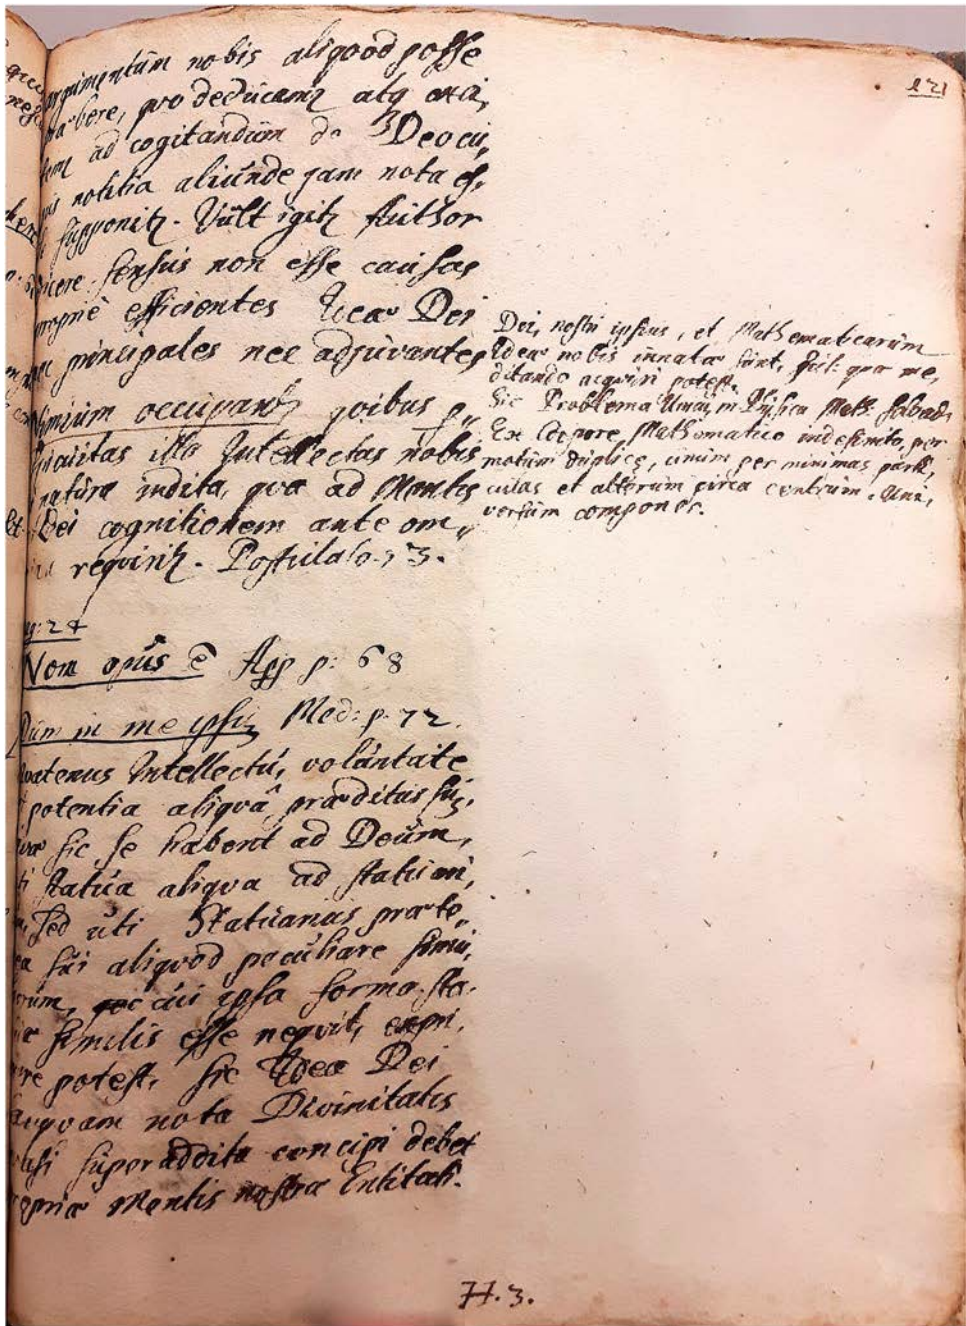 121
argumentum nobis aliquod posse
bere, quo deducamq atq exci,
ad cogitandum de Deo cu,
notitia aliunde jam nota es.
supponitr. Vult igitr Author
dicere sensus non esse causas
propriè efficientes Ideæ Dei
principales nec adjuvantes
nimium occupantr quibus p,,
illa Intellectus nobis
natura indita, quæ ad Mentis
Dei cognitionem ante om,,
requiritr. Postulato. 3.
pag: 24
Non opus ē App p: 68
Dum in me ipsū Med: p. 72.
quatenus Intellectu, voluntate
potentia aliquâ præditus su,
sic se habent ad Deum,
statua aliqua ad statuari,
sed uti Statuarius præte,,
sui aliquod peculiare simu,
cui ipsa forma sta,
similis esse nequit, expri,
potest, sic Idea Dei
tanquam nota Divinitatis
quasi superaddita concipi debet
propriæ Mentis nostræ Entitati.
Dei, nostri ipsius, et Mathematicarum
Ideæ nobis innatæ sunt, scil: quæ me,
ditando acquiri potest.
Sic Problema in Physica Math:
Ex Corpore Mathematico indefinito, per
motum duplicē, unum per minimas parti,
culas et alterum circa centrum. Uni,
versum componere.
H. 3.